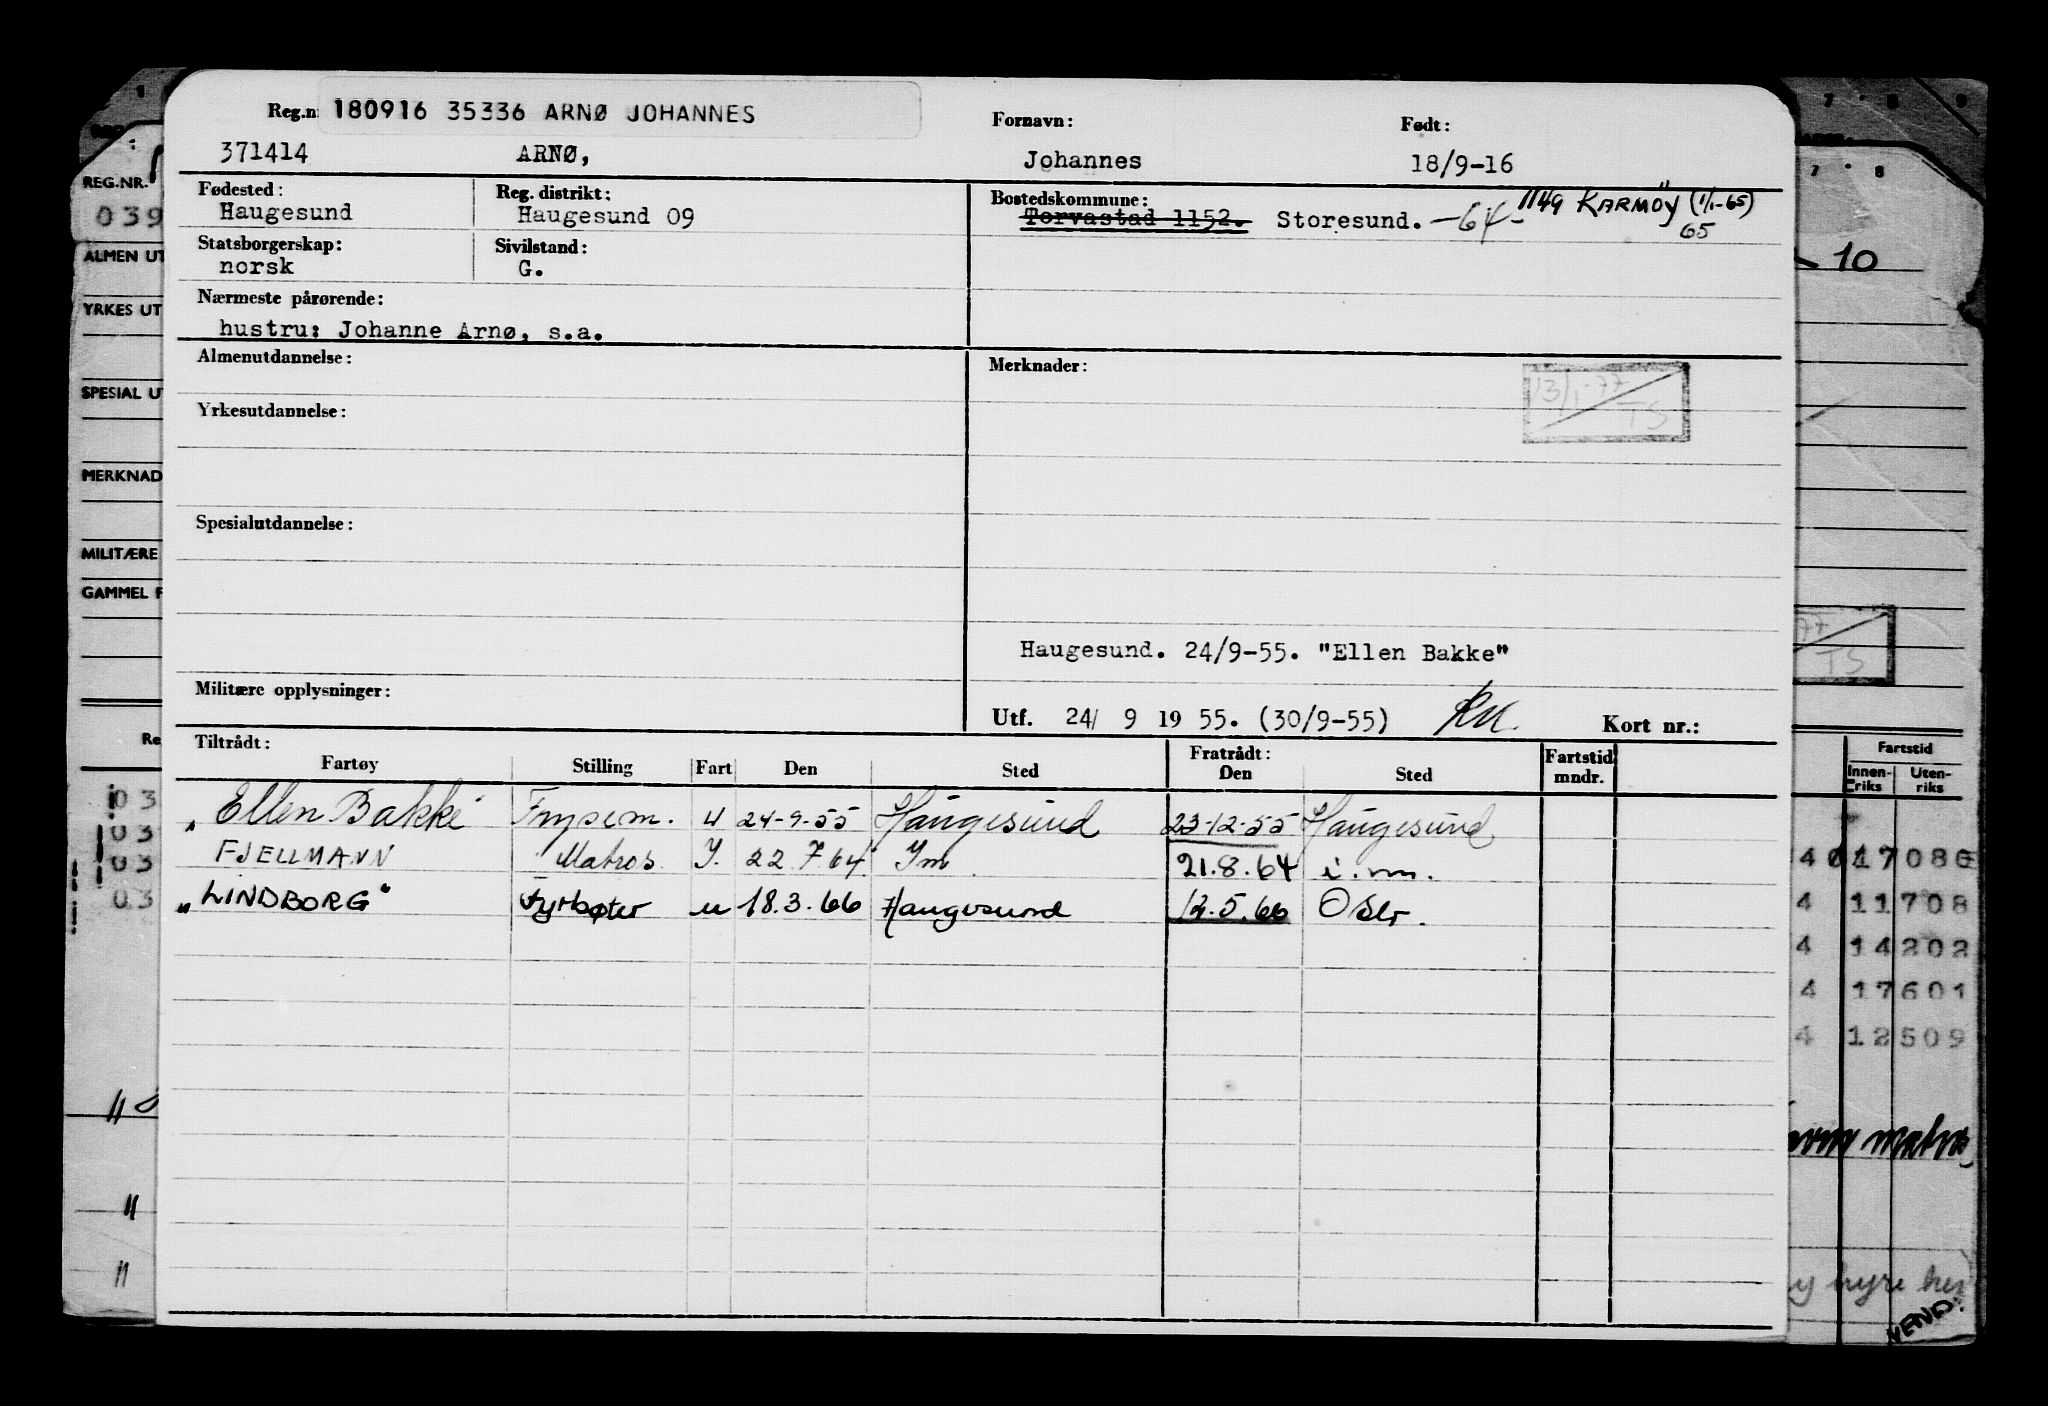 Reg.n 180916 35336 ARNØ JOHANNES
Fornavn: Født:
371414 ARNØ, Johannes 18/9-16
Fødested: Reg. distrikt: Bostedskommune:
Haugesund Haugesund 09 Torvastad 1152. Storesund. -64- 1149 KARMÖY (1/1-65)
65
Statsborgerskap: Sivilstand:
norsk G.
Nærmeste pårørende:
hustru: Johanne Arnø, s.a.
Almenutdannelse: Merknader:
13/1-77
TS
Yrkesutdannelse:
Spesialutdannelse:
Haugesund. 24/9-55. "Ellen Bakke"
Militære opplysninger:
Utf. 24/ 9 19 55. (30/9-55) Kort nr.:
Tiltrådt: Fratrådt: Fartstid
Fartøy Stilling Fart Den Sted Den Sted mndr.
"Ellen Bakke" U 24-9-55 Haugesund 23-12-55 Haugesund
FJELLMANN Matros I. 22 7 64 21.8.64
"LINDBORG" Fyrbøter u 18.3.66 Haugesund 12.5.66 Oslo.
REG.NR.
039
ALMEN UT
YRKES UT
SPESIAL UT
MERKNAD
MILITÆRE
GAMMEL F
Re
03
03
03
03
7 8 9
7 8
10
77
TS
Fartstid
Innen-riks Uten-riks
4 11708
4 14202
4 17601
4 12509
matros
hyre her
VEND.